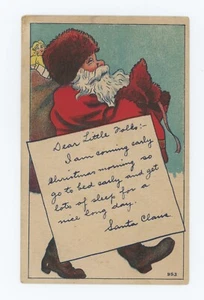 Dear Little Folks:-
I am coming early
Christmas morning so
go to bed early and get
lots of sleep for a
nice long day.
Santa Claus
952